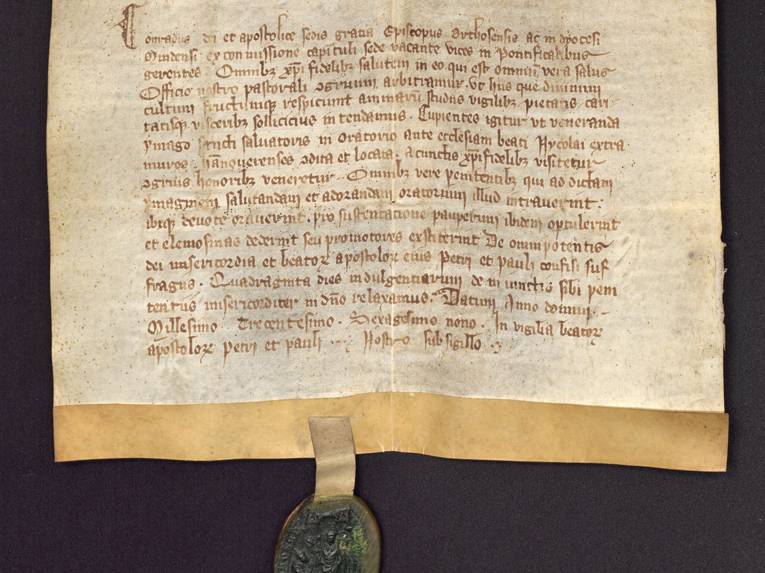 Conradus dei et apostolice sedis gratia Episcopus Orthosensis ac in dyocesi
Mindensi ex commissione capituli sede vacante vices in Pontificalibus
gerentes. Omnibꝫ xp̄i fidelibꝫ salutem in eo qui est omnium vera salus
Officio nostro pastorali ꝯgruum arbitramur. vt hiis que diuinum
cultum fructumqꝫ respiciunt animarum studiis vigilibꝫ pietatis cari
tatisqꝫ visceribꝫ sollicicius intendamus. Cupientes igitur vt veneranda
ymago sancti saluatoris in Oratorio ante ecclesiam beati Nycolai extra
muros hanouerenses ꝯdita et locata, a cunctis xp̄i fidelibꝫ visitetur
ꝯgruis honoribꝫ veneretur. Omnibꝫ vere penitentibꝫ qui ad dictam
ymaginem salutandam et adorandam oratorium illud intrauerint:
ibiqꝫ deuote orauerint, pro sustentacione pauperum ibidem optulerint
et elemosinas dederint seu promotores extiterint De omnipotentis
dei misericordia et beatoꝝ apostoloꝝ eius Petri et pauli confisi suf
fragiis. Quadraginta dies indulgentiarum de iniunctis sibi peni
tentiis misericorditer in dn̄o relaxamus. Datum Anno domini.
Millesimo. Trecentesimo. Sexagesimo nono. In vigilia beatoꝝ
apostoloꝝ petri et pauli Nostro sub sigillo